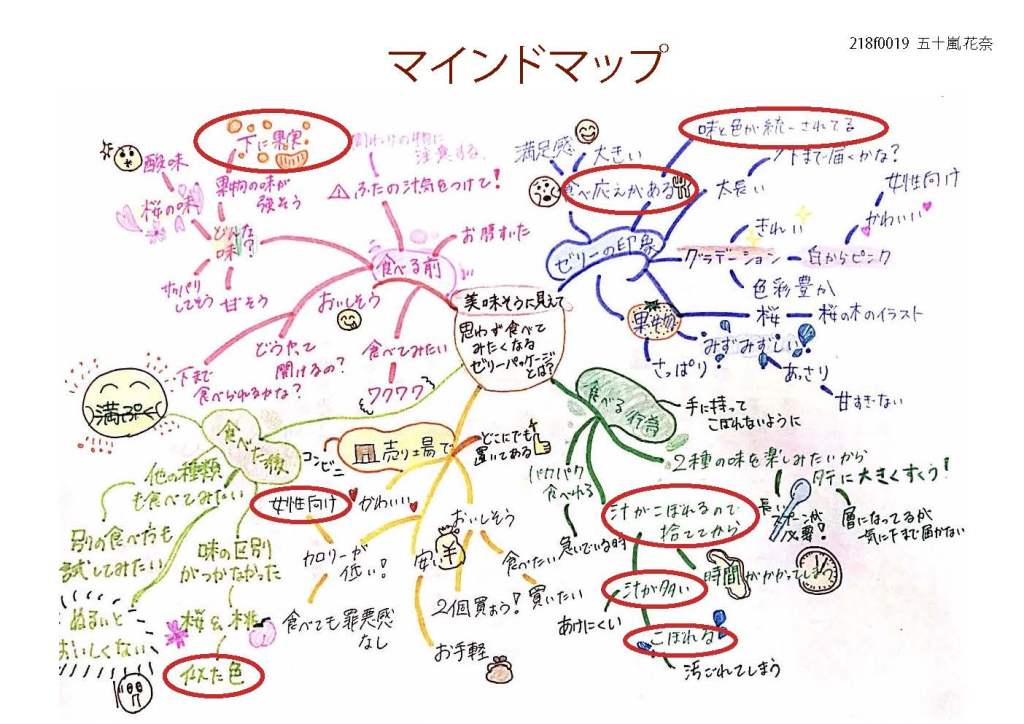 218f0019 五十嵐花奈
マインドマップ
美味そうに見えて
思わず食べて
みたくなる
ゼリーパッケージ
とは?
食べる前
どんな
味?
酸味
桜の味
サッパリ
してそう
甘そう
果物の味が
強そう
下に果実
注意する
ふたの汁気をつけて!
お腹すいた
おいしそう
どうやって
開けるの?
下まで
食べられるかな?
食べてみたい
ワクワク
ゼリーの印象
満足感
大きい
食べ応えがある
味と色が統一されてる
太長い
下まで届くかな?
グラデーション
きれい
白からピンク
かわいい
女性向け
色彩豊か
果物
桜
桜の木のイラスト
みずみずしい!
さっぱり!
あっさり
甘すぎない
食べる行為
手に持って
こぼれないように
2種の味を楽しみたいから
タテに大きくすくう!
長い
スプーンが
必要!
層になってるが
一気に下まで届かない
パクパク
食べれる
急いでいる時
汁がこぼれるので
捨ててから
時間がかかってしまう
汁が多い
あけにくい
こぼれる
汚ごれてしまう
売り場で
コンビニ
どこにでも
置いてある
かわいい
女性向け
カロリーが
低い!
食べても罪悪感
なし
安い
¥
お手軽
おいしそう
食べたい
買いたい
2個買おう!
食べた後
満ぷく
他の種類
も食べてみたい
別の食べ方も
試してみたい
ぬるいと
おいしくない
味の区別
がつかなかった
桜&桃
似た色